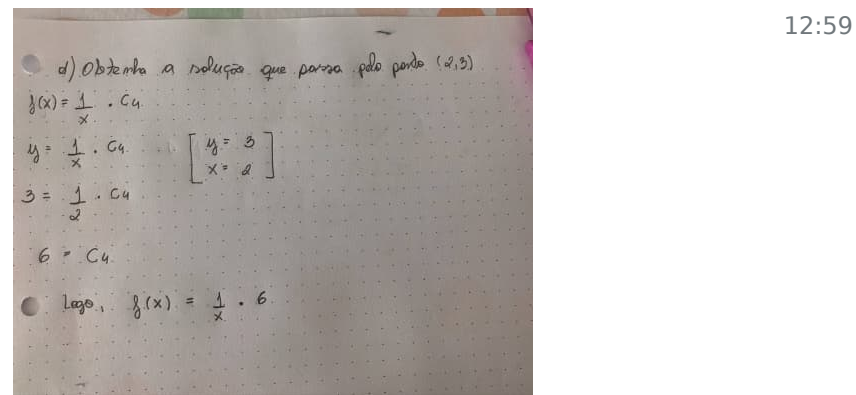 12:59
d) Obtenha a solução que passa pelo ponto (2,3)
f(x) = 1/x . C4
y = 1/x . C4 [ y = 3
x = 2 ]
3 = 1/2 . C4
6 = C4
Logo, f(x) = 1/x . 6